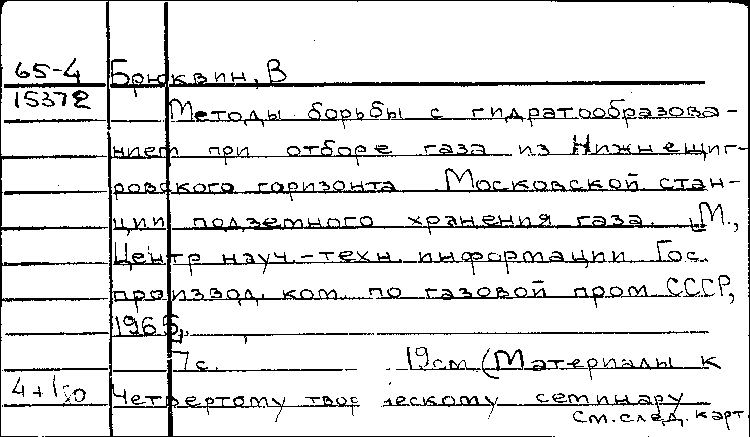 65-4 Брюквин, В
15372
Методы борьбы с гидратообразова-
нием при отборе газа из Нижнещиг-
ровского горизонта Московской стан-
ции подземного хранения газа. М.,
Центр науч.-техн. информации Гос.
производ. ком. по газовой пром СССР,
1965.
7с. 19см (Материалы к
Четвертому творческому семинару
см. след. карт.